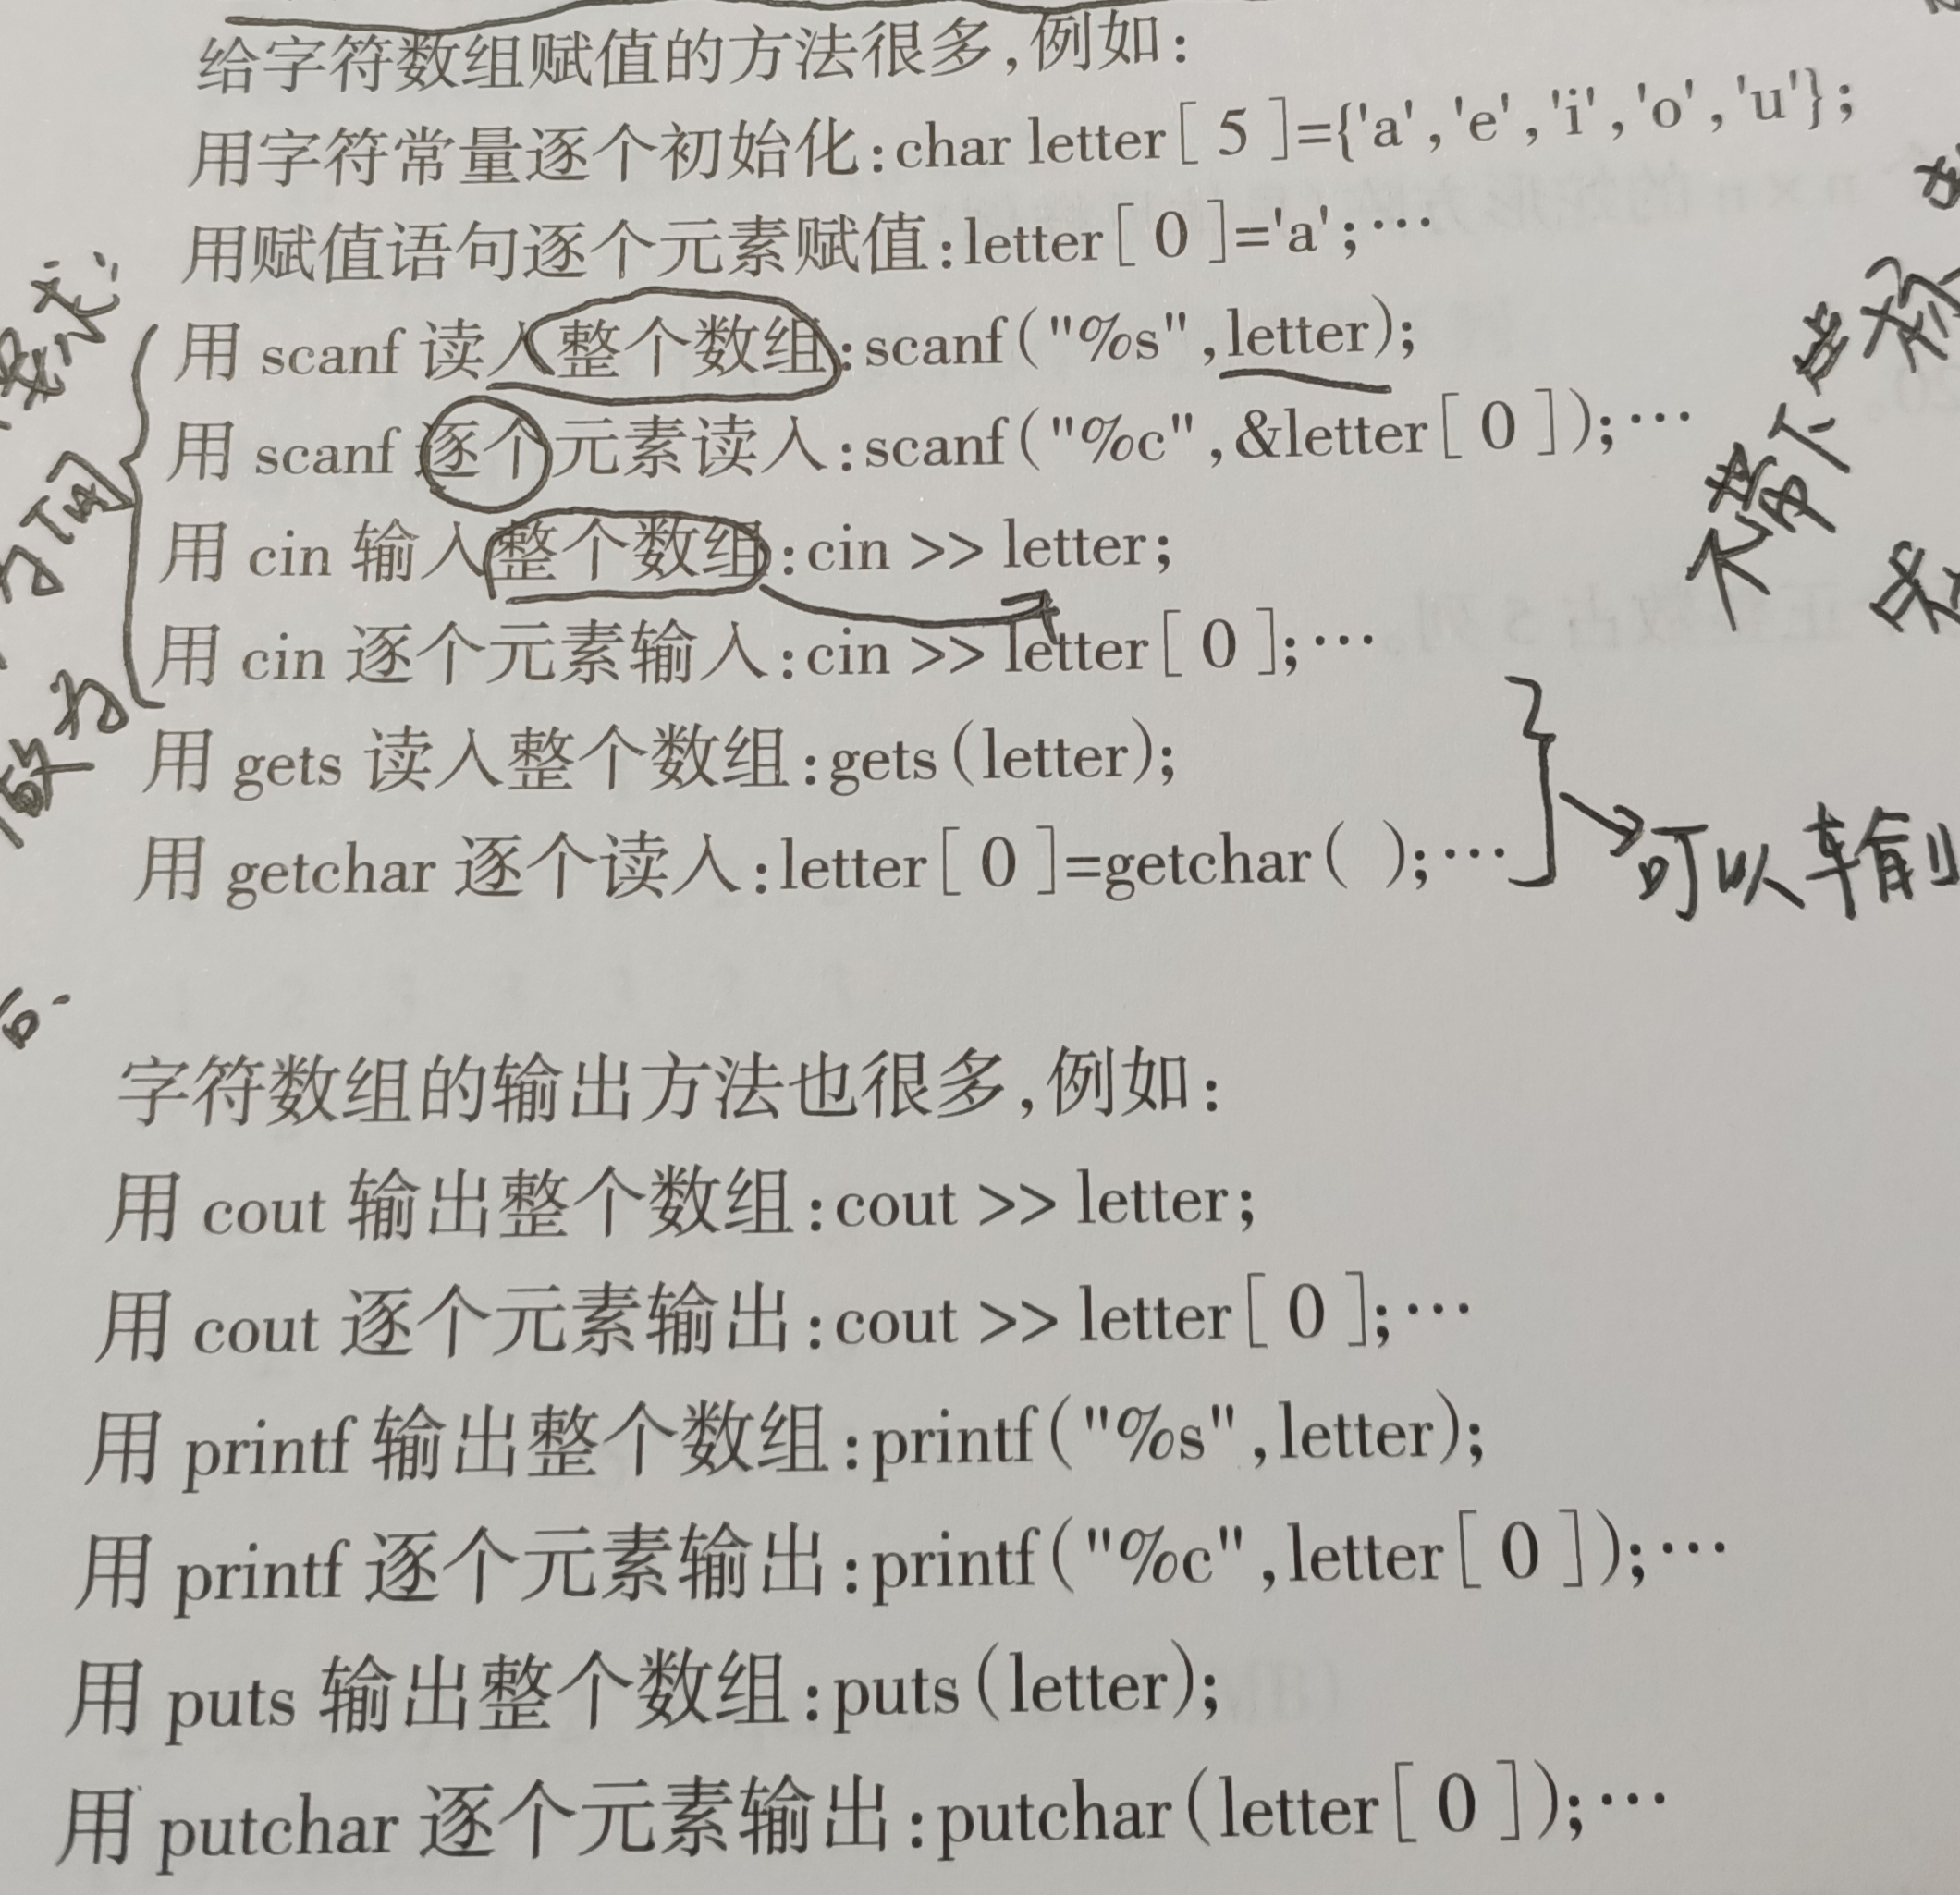 给字符数组赋值的方法很多,例如:
用字符常量逐个初始化:char letter[ 5 ]={'a','e','i','o','u'};
用赋值语句逐个元素赋值:letter[ 0 ]='a';…
用 scanf 读入整个数组:scanf("%s",letter);
用 scanf 逐个元素读入:scanf("%c",&letter[ 0 ]);…
不带下标
用 cin 输入整个数组:cin >> letter;
用 cin 逐个元素输入:cin >> letter[ 0 ];…
用 gets 读入整个数组:gets(letter);
用 getchar 逐个读入:letter[ 0 ]=getchar( );…
可以输
字符数组的输出方法也很多,例如:
用 cout 输出整个数组:cout >> letter;
用 cout 逐个元素输出:cout >> letter[ 0 ];…
用 printf 输出整个数组:printf("%s",letter);
用 printf 逐个元素输出:printf("%c",letter[ 0 ]);…
用 puts 输出整个数组:puts(letter);
用 putchar 逐个元素输出:putchar(letter[ 0 ]);…